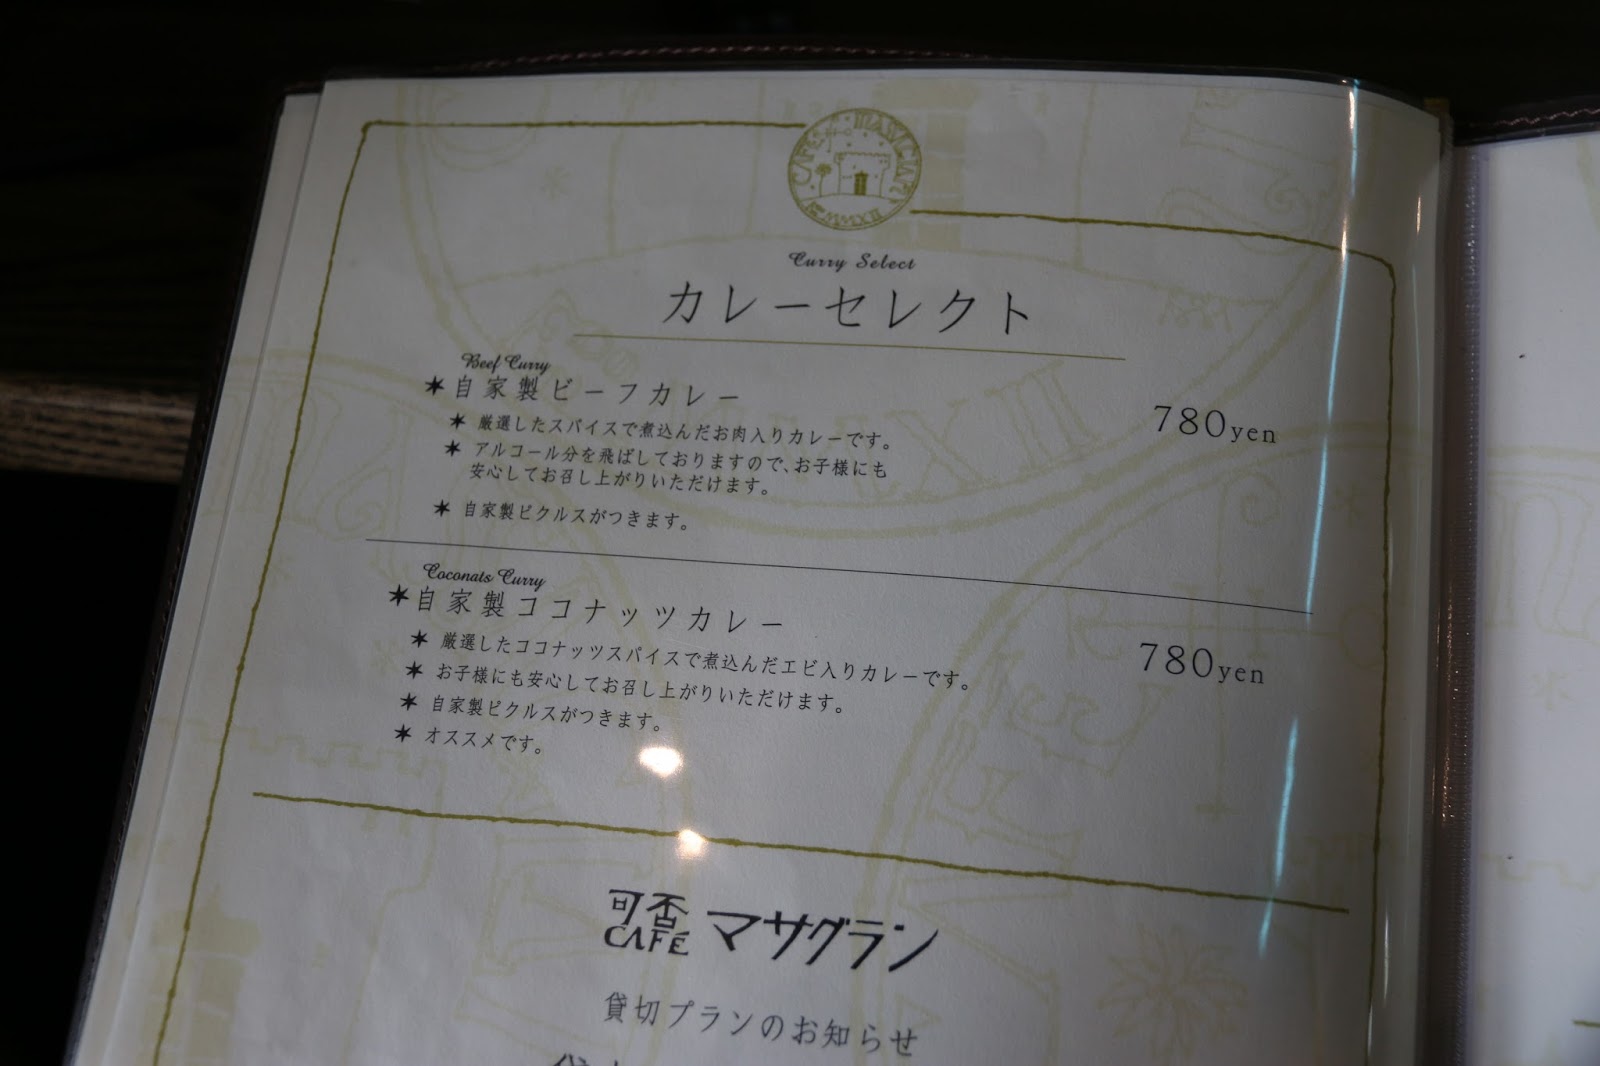 CAFÉ
MMXII
Curry Select
カレーセレクト
Beef Curry
✶自家製ビーフカレー
780yen
✶ 厳選したスパイスで煮込んだお肉入りカレーです。
✶ アルコール分を飛ばしておりますので、お子様にも
安心してお召し上がりいただけます。
✶ 自家製ピクルスがつきます。
Coconats Curry
✶自家製ココナッツカレー
780yen
✶ 厳選したココナッツスパイスで煮込んだエビ入りカレーです。
✶ お子様にも安心してお召し上がりいただけます。
✶ 自家製ピクルスがつきます。
✶ オススメです。
可否
CAFÉ マサグラン
貸切プランのお知らせ